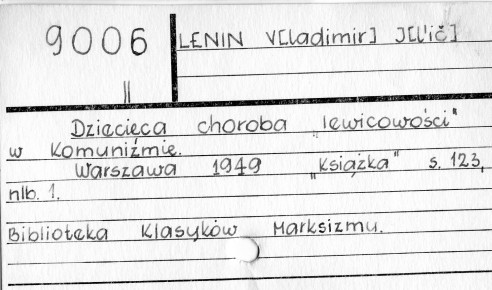 9006
LENIN V[ladimir] J[l'ič]
II
Dziecięca choroba „lewicowości"
w Komuniźmie.
Warszawa 1949 „Książka" s. 123,
nlb. 1.
Biblioteka Klasyków Marksizmu.